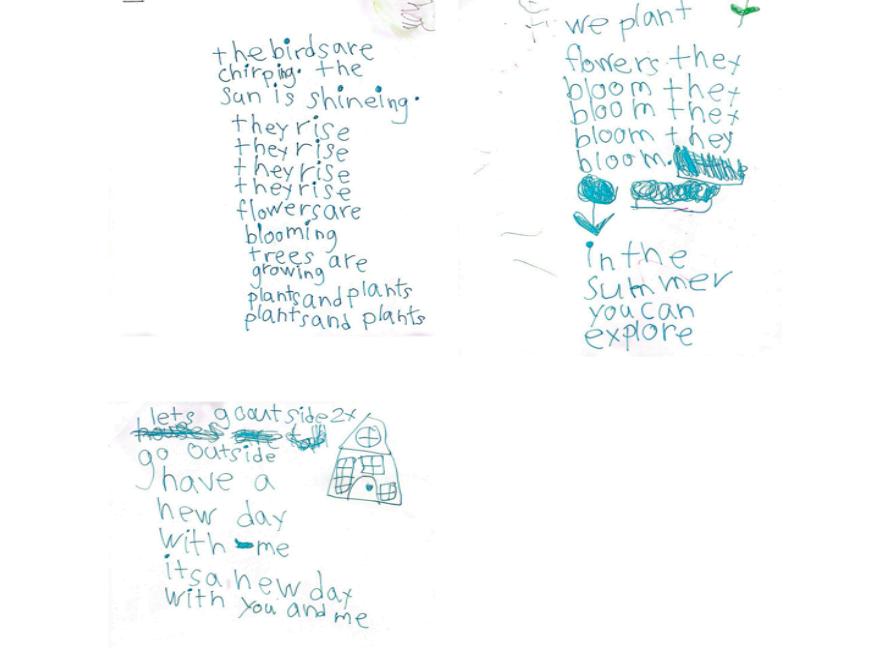 the birds are
chirping. the
sun is shineing.
they rise
they rise
they rise
they rise
flowers are
blooming
trees are
growing
plants and plants
plants and plants
we plant
flowers they
bloom they
bloom they
bloom they
bloom.
in the
summer
you can
explore
lets go out side 2x
go outside
have a
new day
with me
its a new day
with you and me